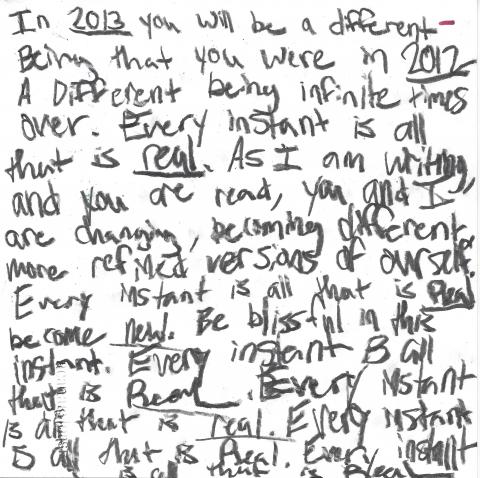 In 2013 you will be a different
Being that you were in 2012
A Different being infinite times
over. Every instant is all
that is real. As I am writing,
and you are read, you and I
are changing, becoming different,
more refined versions of ourself.
Every instant is all that is Real
become new. Be blissful in this
instant. Every instant is all
that is Real. Every instant
is all that is real. Every instant
is all that is Real. Every instant
is all that is Real